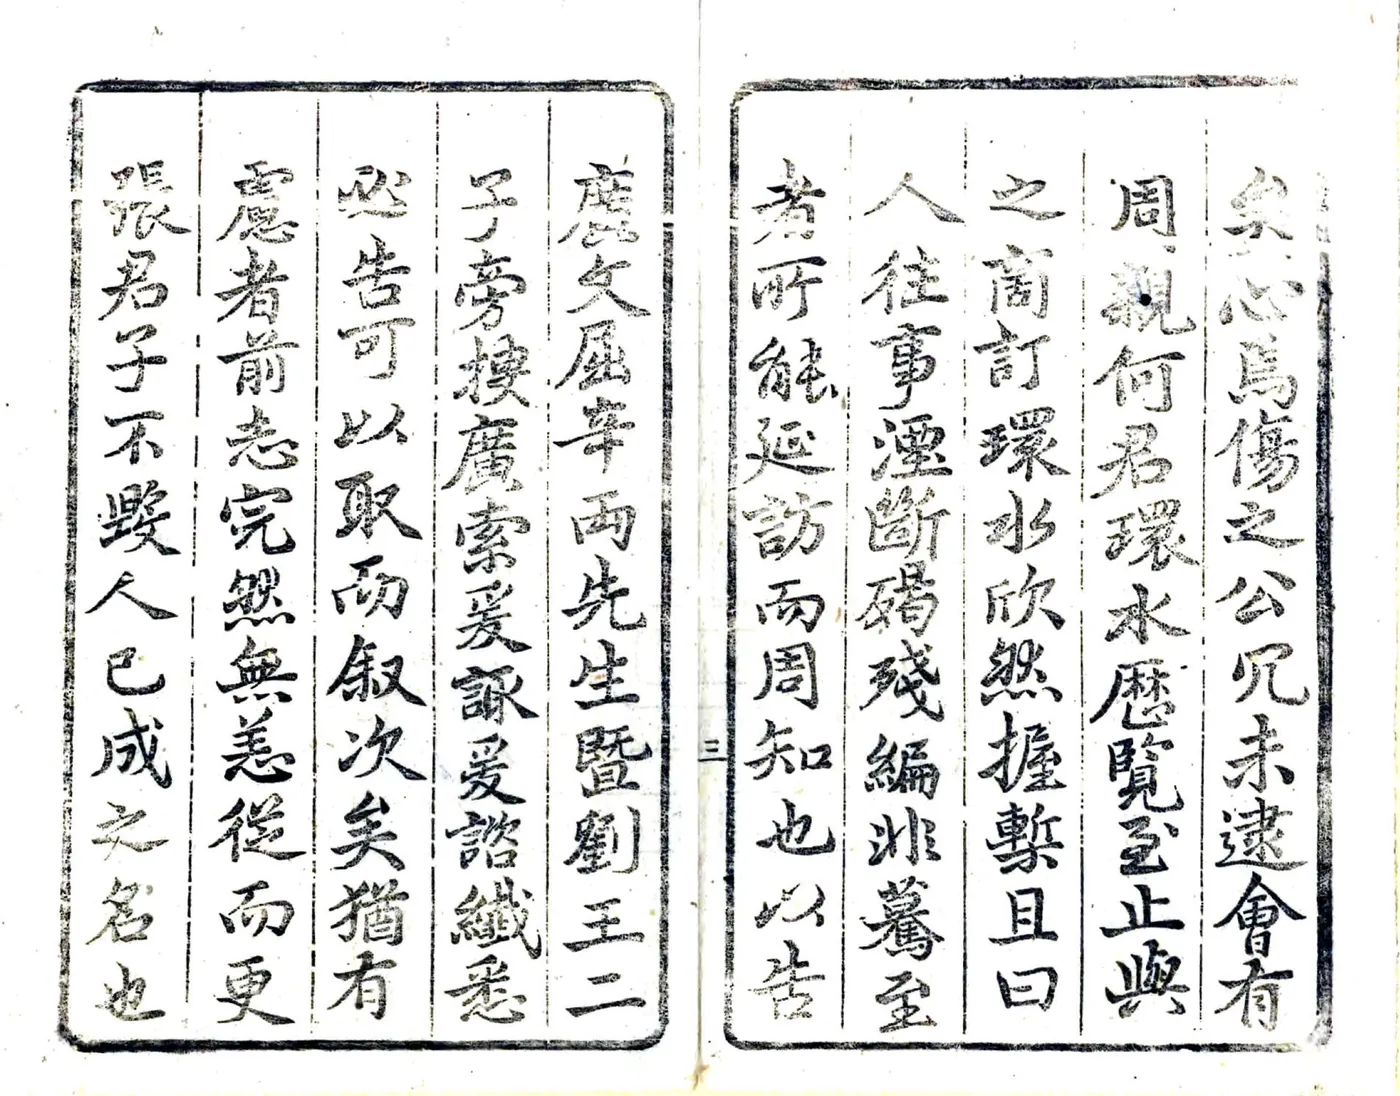 矣心焉傷之公冗未逮會有
周親何君環水歷覽至止與
之商訂環水欣然握槧且曰
人往事湮斷碣殘編非驀至
者所能延訪而周知也以告
廣文屈辛兩先生暨劉王二
子旁搜廣索爰諏爰諮纖悉
必告可以取而叙次矣猶有
慮者前志完然無恙從而更
張君子不毀人已成之名也
三